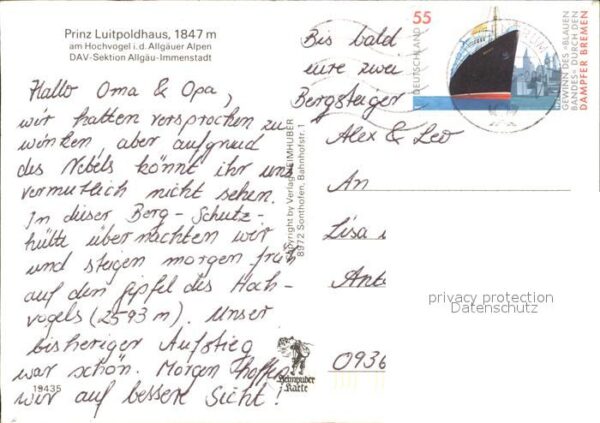 Prinz Luitpoldhaus, 1847 m
am Hochvogel i. d. Allgäuer Alpen
DAV-Sektion Allgäu-Immenstadt
Hallo Oma & Opa,
wir hatten versprochen zu
winken, aber aufgrund
des Nebels könnt ihr uns
vermutlich nicht sehen.
In dieser Berg-Schutz-
hütte übernachten wir
und steigen morgen früh
auf den Gipfel des Hoch-
vogels (2593 m). Unser
bisheriger Aufstieg
war schön. Morgen hoffen
wir auf bessere Sicht!
19435
Copyright by Verlag HEIMHUBER
8972 Sonthofen, Bahnhofstr. 1
Heimhuber
Karte
Bis bald
eure zwei
Bergsteiger
Alex & Leo
An
Lisa
Anto
0936
55
DEUTSCHLAND
GEWINN DES »BLAUEN
BANDES« DURCH DEN
DAMPFER BREMEN
privacy protection
Datenschutz